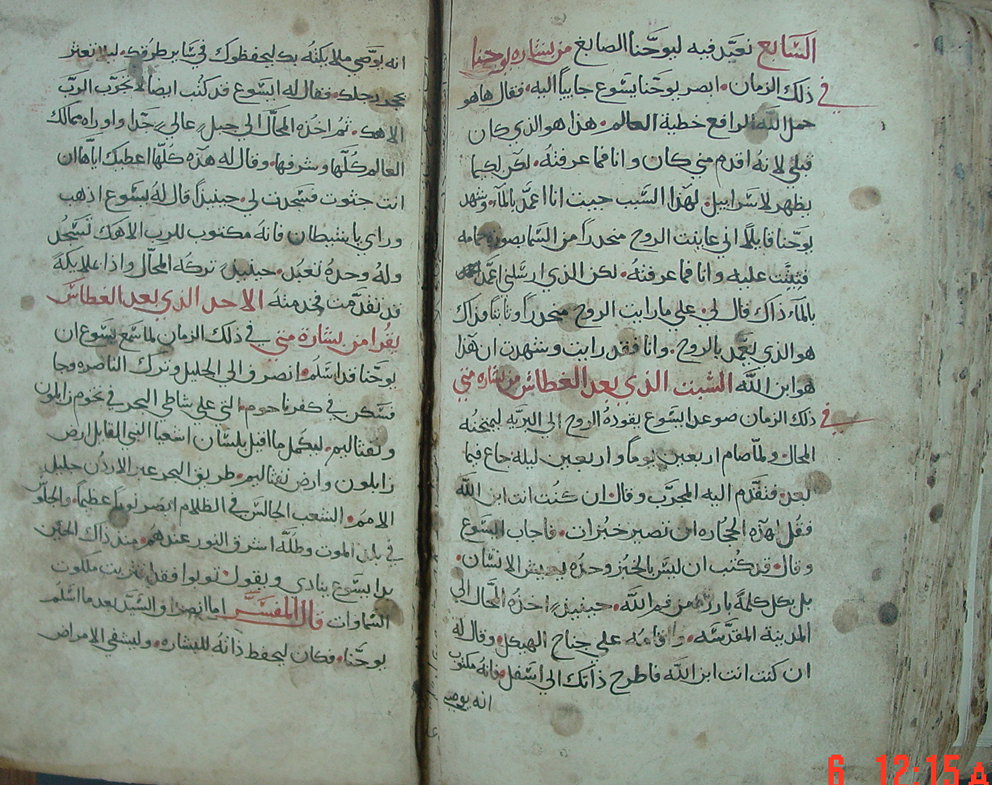 السابع نعيّد فيه ليوحنا الصابغ من بشاره يوحنا
في ذلك الزمان ابصر يوحنا يسوع جايياً اليه فقال هاهو
حمل الله الرافع خطية العالم هذا هو الذي كان
قبلي لانه اقدم مني كان وانا فما عرفته لكن لكيما
يظهر لاسراييل لهذا السبب جيت انا اعمد بالماء وشهد
يوحنا قايلاً اني عاينت الروح منحدراً من السما بصورة حمامه
فثبتت عليه وانا فما عرفته لكن الذي ارسلني اعمد
بالماء ذاك قال لي على ما رايت الروح منحدراً وثابتاً فذاك
هو الذي يعمد بالروح وانا فقد رايت وشهدت ان هذا
هو ابن الله السبت الذي بعد الغطاس من بشاره متي
في ذلك الزمان صوعد ايسوع يقوده الروح الى البريه ليمتحنه
المحال ولما صام اربعين يوماً واربعين ليله جاع فيما
بعد فتقدم اليه المجرب وقال ان كنت انت ابن الله
فقل لهذه الحجاره ان تصير خبزان فاجاب ايسوع
وقال قد كتب ان ليس بالخبز وحده يعيش الانسان
بل بكل كلمة بارزه من فم الله حينيذ اخذه المحال الى
المدينه المقدسه واقامه على جناح الهيكل وقال له
ان كنت انت ابن الله فاطرح ذاتك الى اسفل فانه مكتوب
انه يوصي
انه يوصي ملايكته بك ليحفظوك في ساير طرقك ليلا تعثر
بحجر رجلك فقال له ايسوع قد كتب ايضا لا تجرب الرب
الاهك ثم اخذه المحال الى جبل عالي جدا واوراه ممالك
العالم كلها وشرفها وقال له هذه كلها اعطيك اياها ان
انت جثوت فسجدت لي حينيذ قال له يسوع اذهب
وراي يا شيطان فانه مكتوب للرب الاهك تسجد
وله وحده تعبد حينيذ تركه المحال واذا ملايكة
قد تقدمت تخدمته الاحد الذي بعد الغطاس
يقرا من بشاره متي في ذلك الزمان لما سمع يسوع ان
يوحنا قد اسلم انصرف الى الجليل وترك الناصره وجا
فسكن في كفرناحوم التي على شاطي البحر في تخوم زابلون
ونفتاليم ليكمل ما قيل بلسان اشعيا النبي القايل ارض
زابلون وارض نفتاليم طريق البحر عبر الاردن جليل
الامم الشعب الجالس في الظلام ابصر نوراً عظيماً والجلوس
في بلد الموت وظله اشرق النور عندهم منذ ذاك الحين
بدا يسوع ينادي ويقول توبوا فقد قربت ملكوت
السماوات قال المفسر اما انصرف السيد بعد ما اسلم
يوحنا فكان ليحفظ ذاته للبشاره وليشفي الامراض
6 12:15